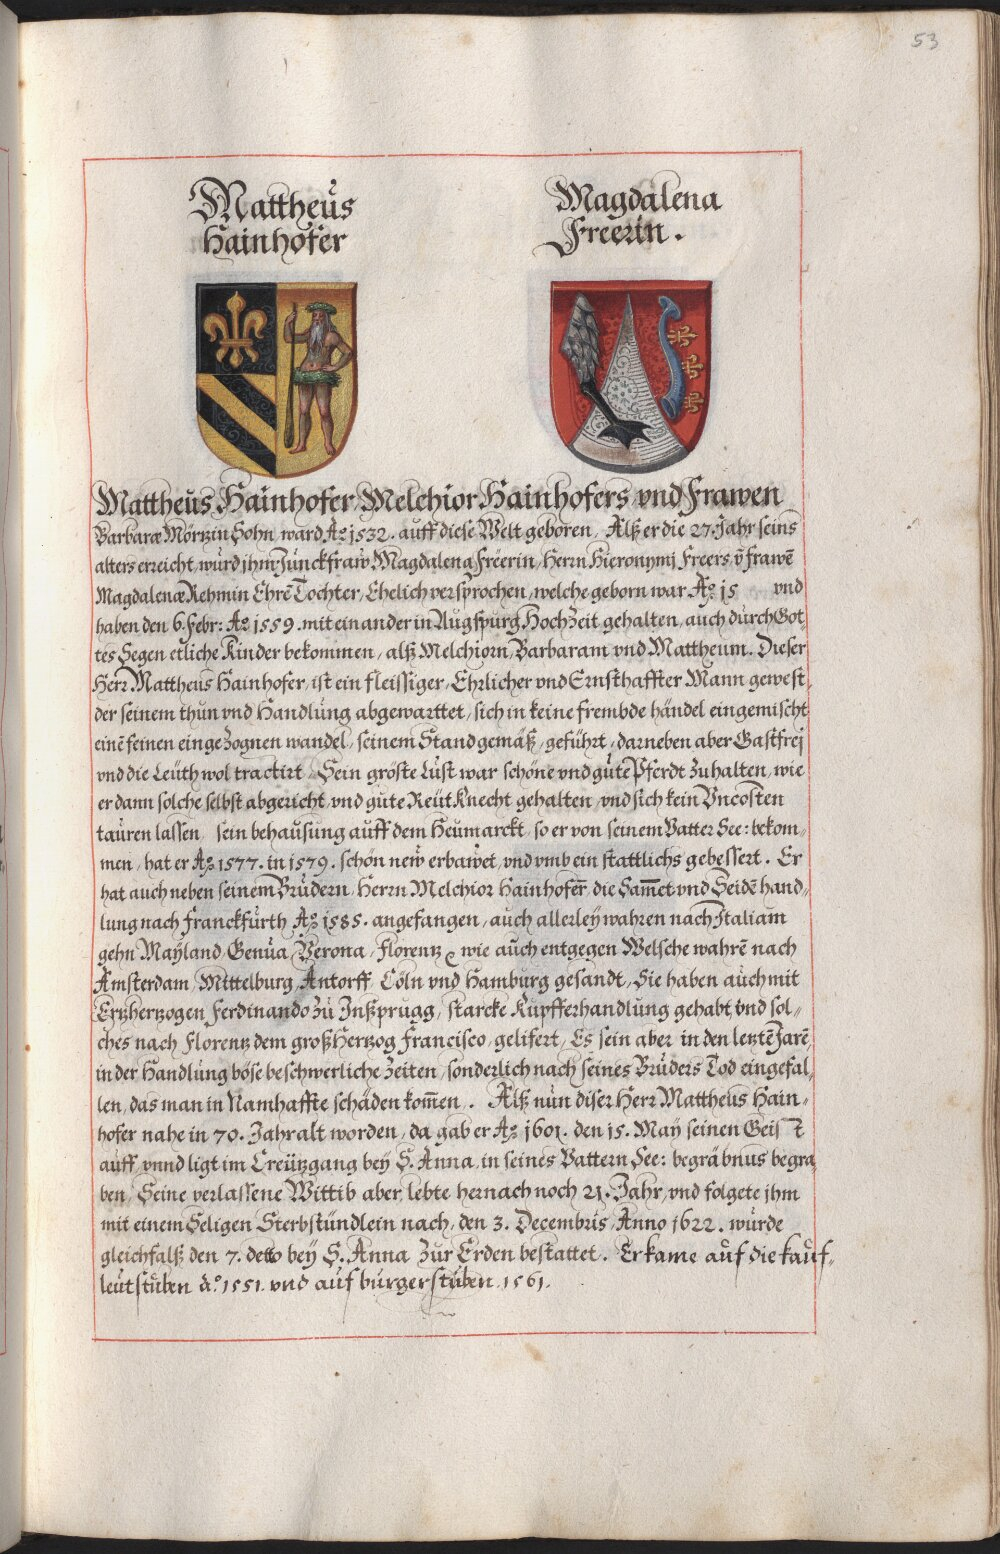 53
Mattheüs
Hainhofer
Magdalena
Freerin.
Mattheüs Hainhofer, Melchior Hainhofers vnd Frawen
Barbaræ Mörtzin Sohn, ward Aº 1532. auff diese Welt geboren, Alß er die 27. Jahr seins
alters erreicht, würd jhm Junckfraw Magdalena Freerin, Herrn Hieronymj Freers, vn̄ Frawē
Magdalenæ Rehmin Ehrē Tochter, Ehelich versprochen, welche geborn war Aº 15 vnd
haben den 6. Febr: Aº 1559. mit einander in Augspurg Hochzeit gehalten, auch dürch Got,,
tes Segen etliche Kinder bekommen, alß Melchiorn, Barbaram vnd Mattheum. Dieser
Herr Mattheüs Hainhofer, ist ein fleissiger, Ehrlicher vnd Ernsthaffter Mann gewest,
der seinem thün vnd Handlüng abgewarttet, sich in keine frembde händel eingemischt
einē feinen eingezognen wandel, seinem Stand gemäß, geführt, darneben aber Gastfrej
vnd die Leüth wol tractirt, Sein gröste Lüst war schöne vnd güte Pferdt zuhalten, wie
er dann solche selbst abgericht, vnd güte Reüt Knecht gehalten, vnd sich kein Vncosten
taüren lassen, sein behaüsung auff dem Heumarckt, so er von seinem Vatter See: bekom,,
men, hat er Aº 1577. in 1579. schön new erbawet, vnd vmb ein stattlichs gebessert. Er
hat auch neben seinem Brüdern, Herrn Melchior Hainhofer̄, die Sam̄et vnd Seidē hand,,
lung nach Franckfürth Aº 1585. angefangen, auch allerley wahren nach Italiam
gehn Mayland, Genüa, Verona, Florentz, wie aüch entgegen Welsche wahrē nach
Amsterdam, Mittelburg, Antorff, Cöln vnd Hamburg gesandt, Sie haben aüch mit
Ertzhertzogen Ferdinando zü Inßprugg, starcke Kupfferhandlüng gehabt, vnd sol,,
ches nach Florentz dem groß Hertzog Francisco, gelifert, Es sein aber in den letztē Jarē,
in der Handlüng böse beschwerliche Zeiten, sonderlich nach seines Brüders Tod eingefal,,
len, das man in Namhaffte schäden kom̄en. Alß nün diser Herr Mattheüs Hain,,
hofer nahe in 70. Jahr alt worden, da gab er Aº 1601. den 15. May seinen Geist
auff, vnnd ligt im Creützgang bey S. Anna, in seines Vattern See: begräbnus begra,,
ben, Seine verlassene Wittib aber, lebte hernach noch 21. Jahr, vnd folgete jhm
mit einem Seligen Sterbstündlein nach, den 3. Decembris, Anno 1622. würde
gleichfalß den 7. detto bey S. Anna zür Erden bestattet. Er kame aüf die kaüf,,
leütstüben Aº. 1551. vnd aüf bürgerstüben 1561.